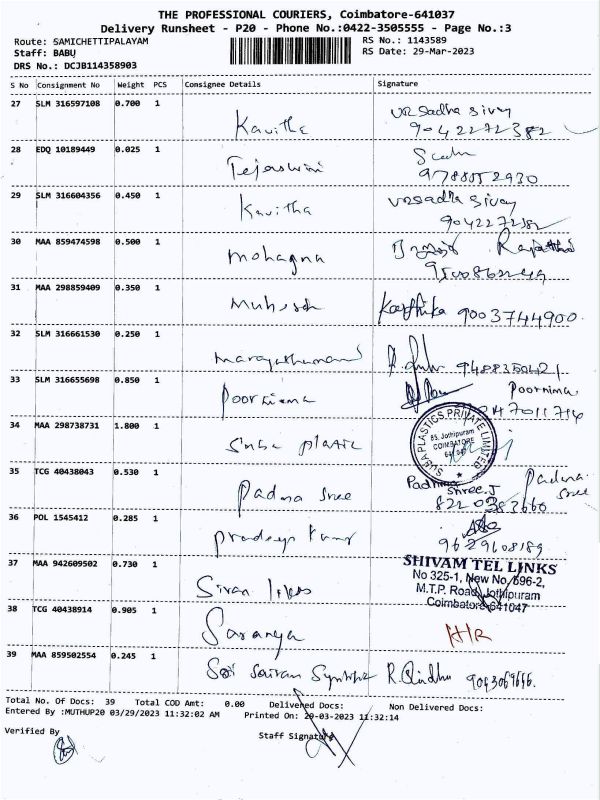 THE PROFESSIONAL COURIERS, Coimbatore-641037
Delivery Runsheet - P20 - Phone No.:0422-3505555 - Page No.:3
Route: SAMICHETTIPALAYAM
Staff: BABU
DRS No.: DCJB114358903
RS No.: 1143589
RS Date: 29-Mar-2023
S No Consignment No Weight PCS Consignee Details Signature
27 SLM 316597108 0.700 1 Kavitha
9042272382
28 EDQ 10189449 0.025 1 Tejaswini
9788552930
29 SLM 316604356 0.450 1 Kavitha
30 MAA 859474598 0.500 1 Mohagna
31 MAA 298859409 0.350 1 Karthika 9003744900
32 SLM 316661530 0.250 1
33 SLM 316655698 0.850 1 Poornima Poornima
34 MAA 298738731 1.800 1
SUBA PLASTICS PRIVATE LIMITED
85, Jothipuram
COIMBATORE
35 TCG 40438043 0.530 1 Padma Sree Padma Sree
Shree.J
36 POL 1545412 0.285 1 pradeep
9629608189
37 MAA 942609502 0.730 1
SHIVAM TEL LINKS
No 325-1, New No. 596-2,
M.T.P. Road, Jothipuram
Coimbatore-641047
38 TCG 40438914 0.905 1 Saranya
39 MAA 859502554 0.245 1 Sri Sairam R. Sindhu
Total No. Of Docs: 39 Total COD Amt: 0.00 Delivered Docs: Non Delivered Docs:
Entered By :MUTHUP20 03/29/2023 11:32:02 AM Printed On: 29-03-2023 11:32:14
Verified By Staff Signature